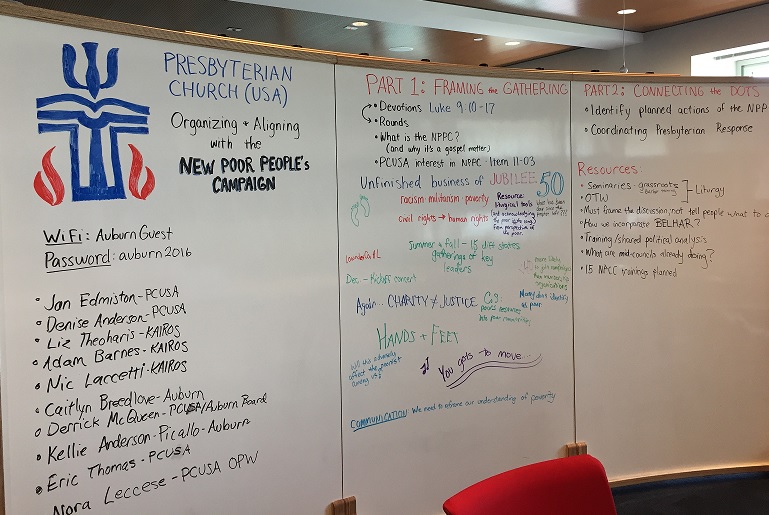 PRESBYTERIAN
CHURCH (USA)
Organizing + Aligning
with the
NEW POOR PEOPLE'S
CAMPAIGN
WiFi: Auburn Guest
Password: auburn 2016
• Jan Edmiston - PCUSA
• Denise Anderson - PCUSA
• Liz Theoharis - KAIROS
• Adam Barnes - KAIROS
• Nic Laccetti - KAIROS
• Caitlyn Breedlove - Auburn
• Derrick McQueen - PCUSA/Auburn Board
• Kellie Anderson-Picallo - Auburn
• Eric Thomas - PCUSA
• Nora Leccese - PCUSA OPW
PART 1: FRAMING the GATHERING
• Devotions Luke 9:10-17
• Rounds
• What is the NPPC?
(and why it's a gospel matter)
• PCUSA interest in NPPC - Item 11-03
Unfinished business of JUBILEE
50
racism - militarism - poverty
civil rights → human rights
Resource:
liturgical tools
from perspective of
the poor
What has been
done since the
Summer + fall - 15 diff states
gatherings of key
leaders
Dec. - Kickoff concert
more likely
to join
organizations
Again... CHARITY ≠ JUSTICE
Many dons identify
as poor
HANDS + FEET
Will this adversely
affect the
among us?
♫ You gots to move...
COMMUNICATION: We need to reframe our understanding of poverty
PART 2: CONNECTING the DOTS
• Identify planned actions of the NPP
• Coordinating Presbyterian Response
Resources:
• Seminaries - grassroots
• OTW
Liturgy
• Must frame the discussion; not tell people what to
• How we incorporate BELHAR?
• Training/shared political analysis
• What are mid-councils already doing?
• 15 NPCC trainings planned